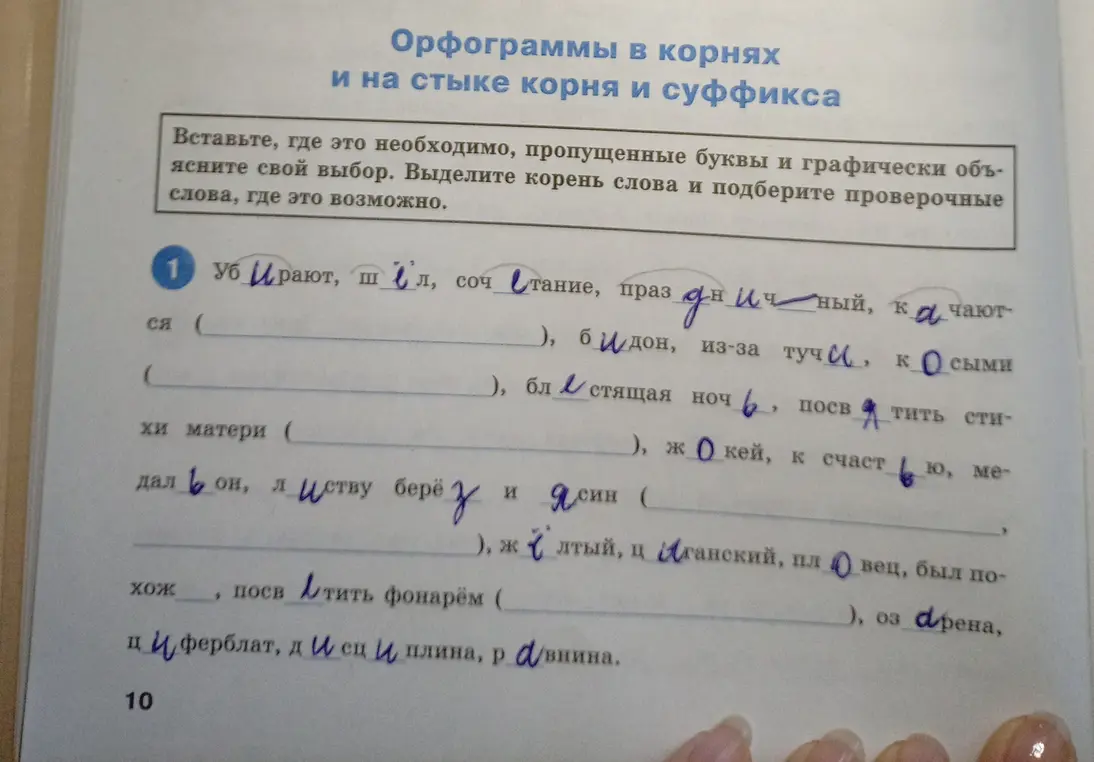 Орфограммы в корнях
и на стыке корня и суффикса
Вставьте, где это необходимо, пропущенные буквы и графически объ-
ясните свой выбор. Выделите корень слова и подберите проверочные
слова, где это возможно.
1 Убирают, шёл, сочетание, праздничный, качают-
ся (____), бидон, из-за тучи, косыми
(____), блестящая ночь, посвятить сти-
хи матери (____), жокей, к счастью, ме-
дальон, листву берёз и ясин (____,
____), жёлтый, цыганский, пловец, был по-
хож__, посветить фонарём (____), озарена,
циферблат, дисциплина, равнина.
10